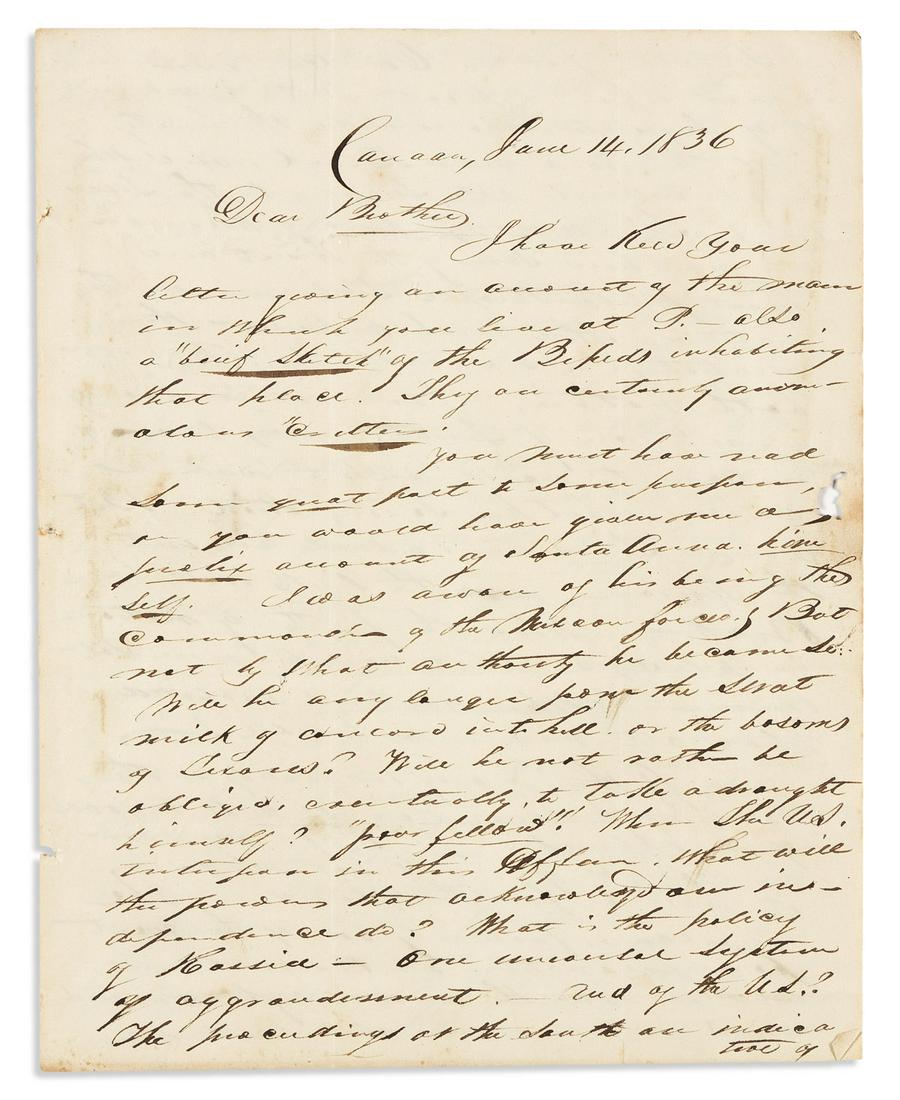 Canaan, June 14, 1836
Dear Brother.
I have Recd Your
letter giving an account of the mann
in which you live at P. — also
a "brief Sketch" of the Bipeds inhabiting
that place. They are certainly anom-
alous "Critters".
You must have read
Some great part to some purpose,
or you would have given me a
prolix account of Santa Anna him
self. I was aware of his being the
Commander of the Mexican forces; But
not by what authority he became so.
Will he any longer pour the Sweet
milk of concord into hell or the bosoms
of Texans? Will he not rather be
obliged, eventually, to take a draught
himself? "poor fellow"!!! When Sha U.S.
interpose in this Affair, what will
the powers that acknowledged our in-
dependence do? What is the policy
of Russia — One universal system
of aggrandisement. — and of the U.S.?
The proceedings at the South are indica
tive of